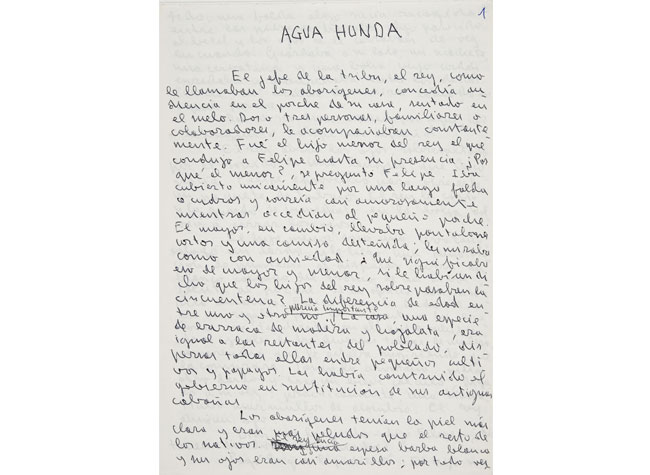 1
AGUA HUNDA
El jefe de la tribu, el rey, como
le llamaban los aborígenes, concedía au
diencia en el porche de su casa, sentado en
el suelo. Dos o tres personas, familiares o
colaboradores, le acompañaban constante
mente. Fué el hijo menor del rey el que
condujo a Felipe hasta su presencia. ¿Por
qué el menor?, se preguntó Felipe. Iba
cubierto unicamente por una larga falda
a cuadros y sonreía casi amorosamente
mientras accedían al pequeño porche.
El mayor, en cambio, llevaba pantalones
cortos y una camisa desteñida; les miraba
como con ansiedad. ¿Qué significaba
eso de mayor y menor, si le habían di
cho que los hijos del rey sobrepasaban la
cincuentena? La diferencia de edad en
tre uno y otro no
parecía importante
La casa, una especie
de barraca de madera y hojalata, era
igual a las restantes del poblado, dis
persas todas ellas entre pequeños culti
vos y papayos. Las había construido el
gobierno en sustitución de sus antiguas
cabañas.
Los aborígenes tenían la piel más
clara y eran más peludos que el resto de
los nativos. El rey lucía
espesa barba blanca
y sus ojos eran casi amarillos; por todo ves